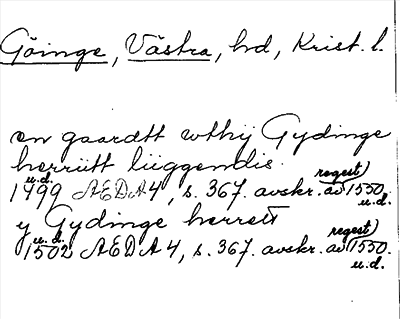 Göinge, Västra, hd, Krist. l.
en gaardtt wthij Gydinge
herriitt liiggendis.
u.d. regest)
1499 ÆDA 4, s. 367. avskr. av 1550.
u.d.
y Gydinge herrett
u.d. regest)
1502 ÆDA 4, s. 367. avskr. av 1550.
u.d.